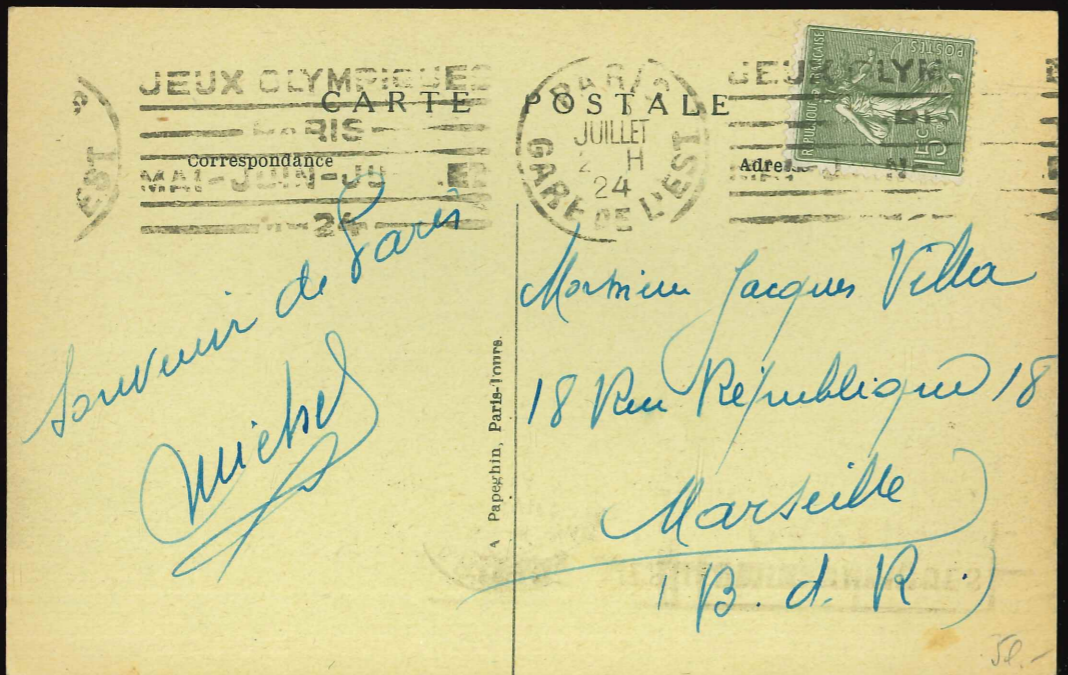 JEUX OLYMPIQUES
PARIS
MAI-JUIN-JUILLET
24
CARTE POSTALE
PARIS
JUILLET
2 H
24
GARE DE L'EST
JEUX OLYM
POSTES
REPUBLIQUE FRANÇAISE
15C
EST
Correspondance
Adresse
Souvenir de Paris
Michel
A Papeghin, Paris-Tours.
Monsieur Jacques Villa
18 Rue République 18
Marseille
(B. d. R.)
50.-